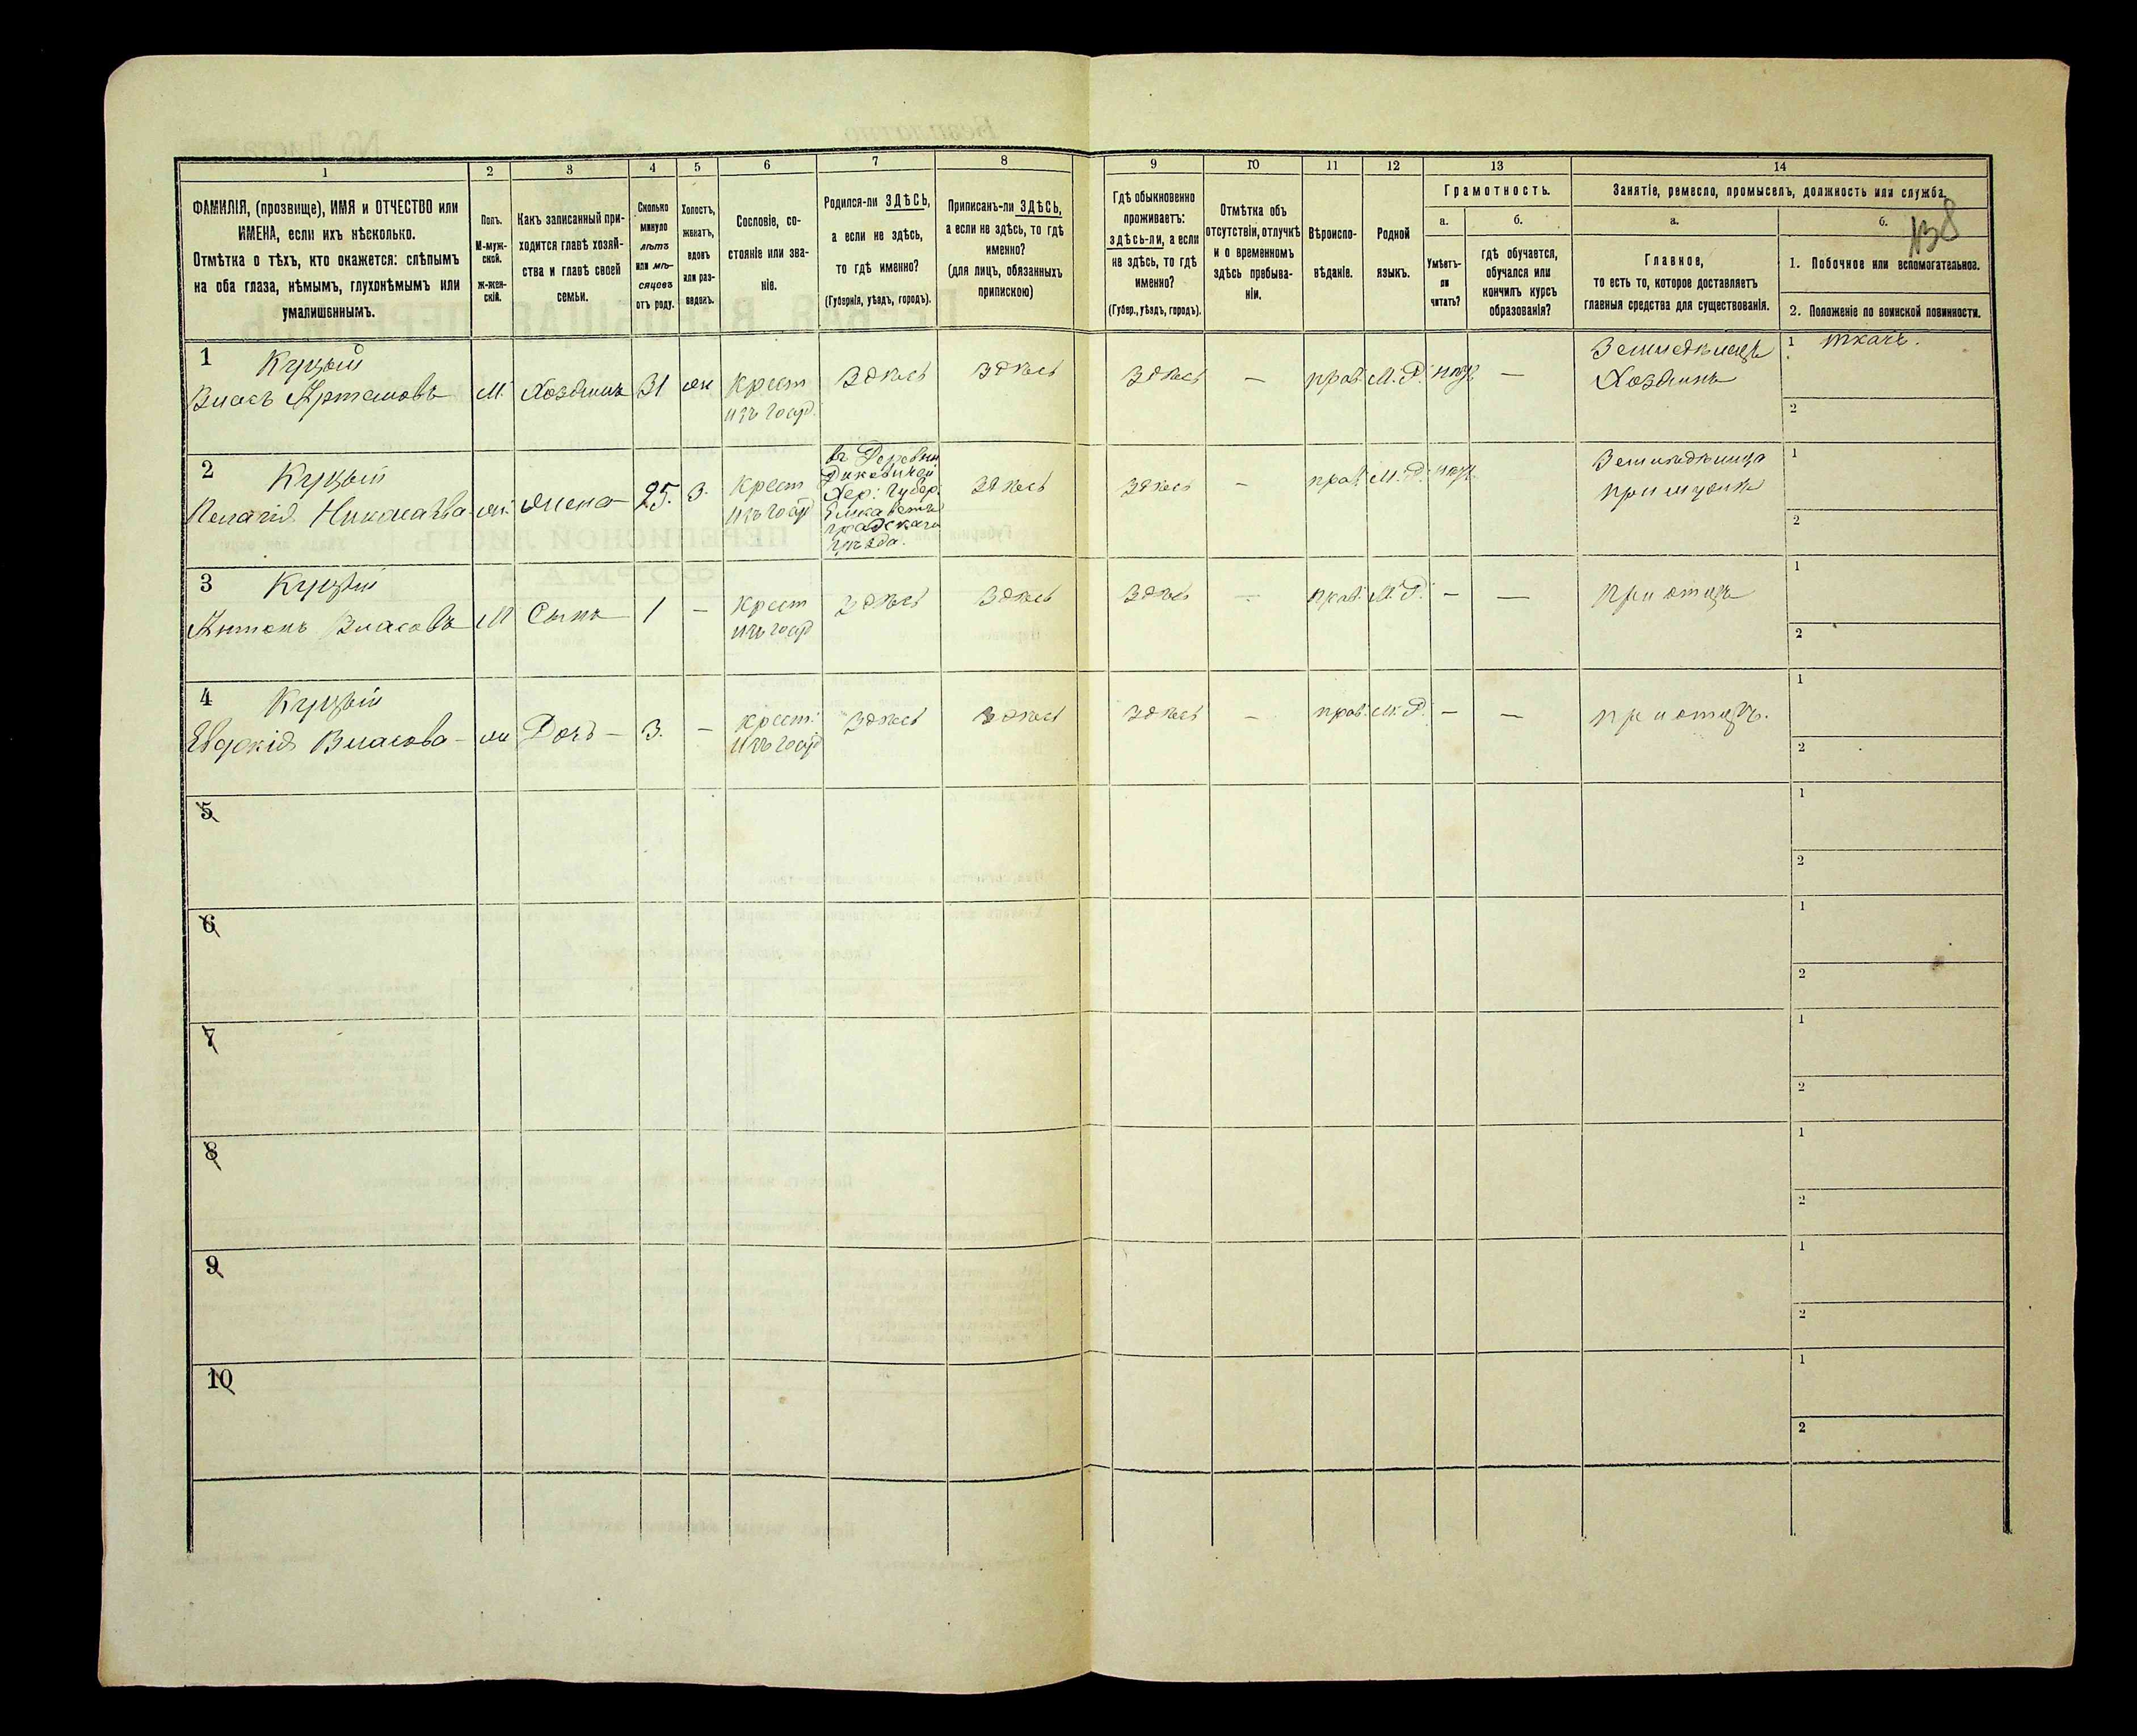 138
1 2 3 4 5 6 7 8 9 10 11 12 13 14
ФАМИЛІЯ, (прозвище), ИМЯ и ОТЧЕСТВО или
ИМЕНА, если ихъ нѣсколько.
Отмѣтка о тѣхъ, кто окажется: слѣпымъ
на оба глаза, нѣмымъ, глухонѣмымъ или
умалишеннымъ.
Полъ.
М-муж-
ской.
Ж-жен-
скій.
Какъ записанный при-
ходится главѣ хозяй-
ства и главѣ своей
семьи.
Сколько
минуло
лѣтъ
или мѣ-
сяцевъ
отъ роду.
Холостъ,
женатъ,
вдовъ
или раз-
веденъ.
Сословіе, со-
стояніе или зва-
ніе.
Родился-ли ЗДѢСЬ,
а если не здѣсь,
то гдѣ именно?
(Губернія, уѣздъ, городъ).
Приписанъ-ли ЗДѢСЬ,
а если не здѣсь, то гдѣ
именно?
(для лицъ, обязанныхъ
припискою)
Гдѣ обыкновенно
проживаетъ:
здѣсь-ли, а если
не здѣсь, то гдѣ
именно?
(Губер., уѣздъ, городъ).
Отмѣтка объ
отсутствіи, отлучкѣ
и о временномъ
здѣсь пребыва-
ніи.
Вѣроиспо-
вѣданіе.
Родной
языкъ.
Грамотность.
а.
Умѣетъ-
ли
читать?
б.
гдѣ обучается,
обучался или
кончилъ курсъ
образованія?
Занятіе, ремесло, промыселъ, должность или служба.
а.
Главное,
то есть то, которое доставляетъ
главныя средства для существованія.
б.
1. Побочное или вспомогательное.
2. Положеніе по воинской повинности.
1 Куцый
Власъ Артемовъ М. Хозяинъ 31 ж Крест
изъ госуд. Здѣсь Здѣсь Здѣсь — прав. М. Р. — Земледѣлецъ
Хозяинъ
1 ткачъ.
2
2 Куцый
Пелагія Николаева ж. жена 25. З. Крест
изъ госуд
въ Деревни
Хер: Губер:
Елисавет
градскаго
уѣзда.
Здѣсь Здѣсь — прав. М. Р. Земледѣлица
при мужѣ
1
2
3 Куцый
Антонъ Власовъ М Сынъ 1 — Крест
изъ госуд Здѣсь Здѣсь Здѣсь — прав. М. Р. — — при отцѣ
1
2
4 Куцый
Евдокія Власова — ж Дочь — 3. — Крест.
изъ госуд Здѣсь Здѣсь Здѣсь — прав. М. Р. — — при отцѣ.
1
2
5
1
2
6
1
2
7
1
2
8
1
2
9
1
2
10
1
2